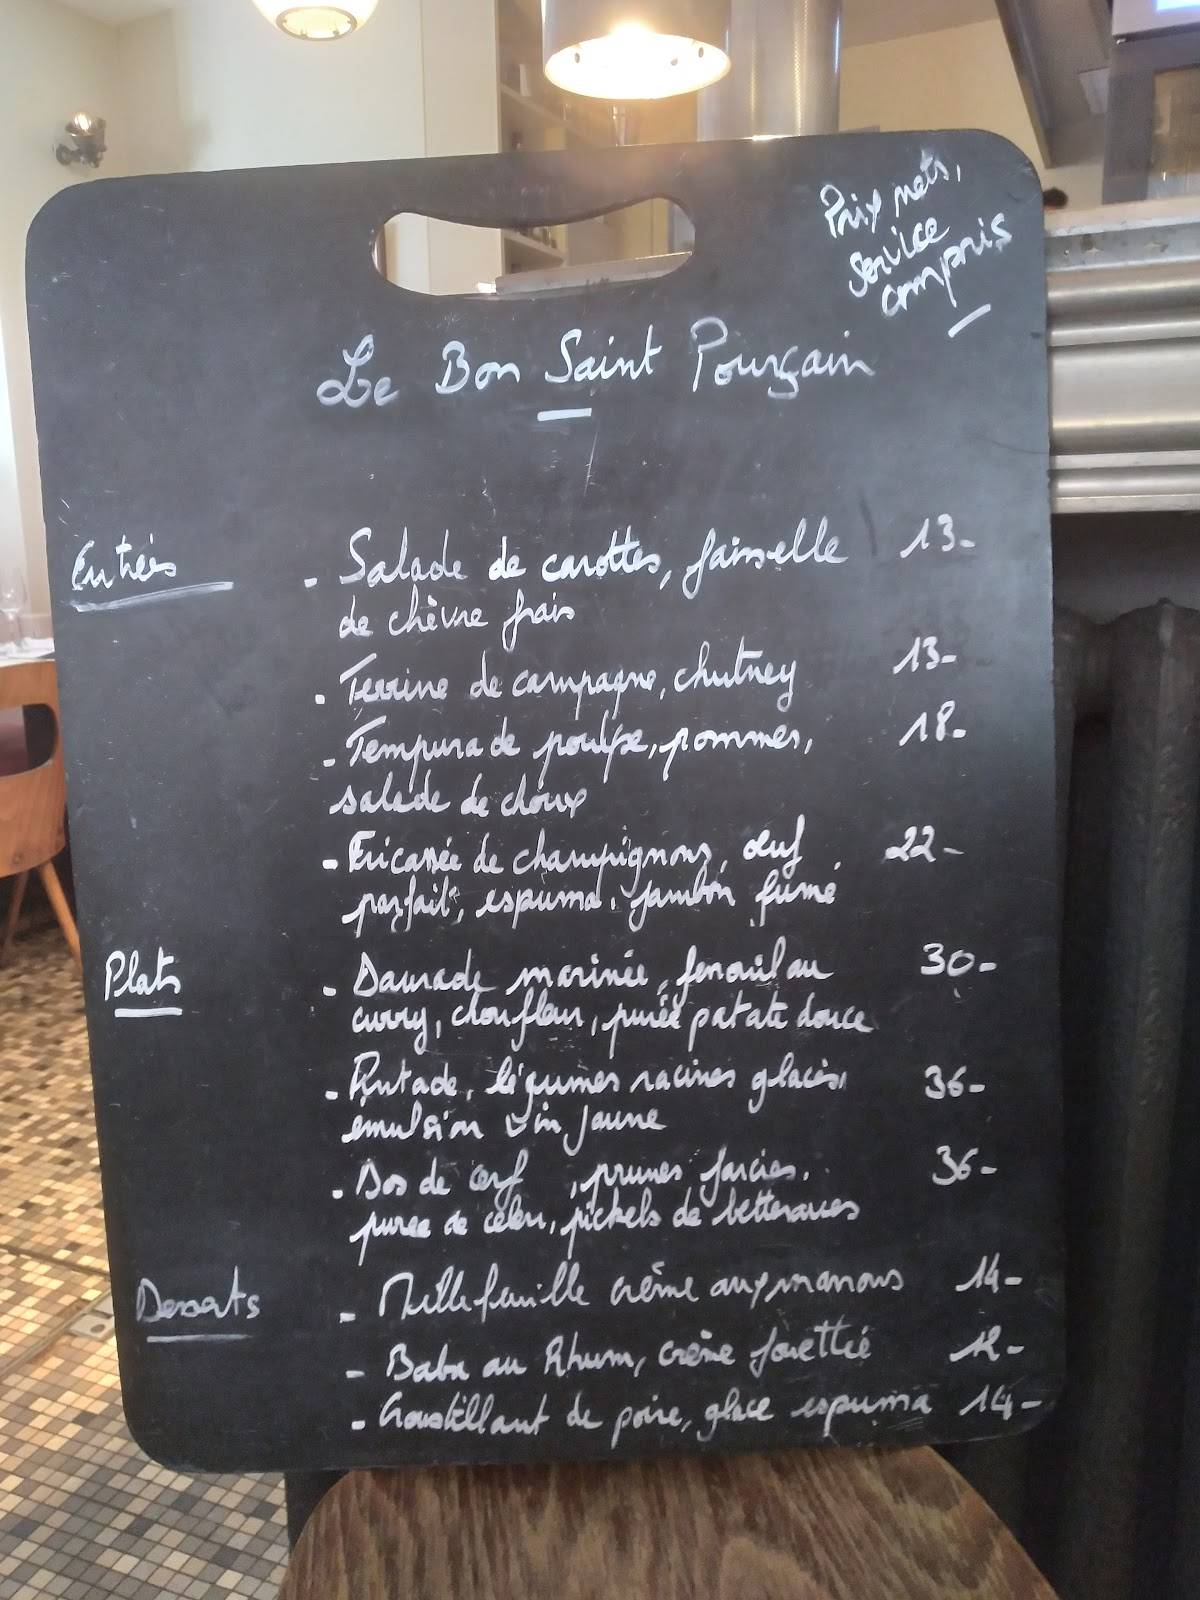 Prix nets,
service
compris
Le Bon Saint Pourçain
Entrées
- Salade de carottes, faisselle 13-
de chèvre frais
- Terrine de campagne, chutney 13-
- Tempura de poulpe, pommes, 18-
salade de choux
- Fricassée de champignons, œuf 22-
parfait, espuma, jambon fumé
Plats
- Daurade marinée, fenouil au 30-
curry, chou fleur, purée patate douce
- Pintade, légumes racines glacés, 36-
émulsion vin jaune
- Dos de cerf, prunes farcies, 36-
puree de céleri, pickels de betteraves
Desserts
- Millefeuille crème aux marrons 14-
- Baba au Rhum, crème fouettée 12-
- Croustillant de poire, glace espuma 14-